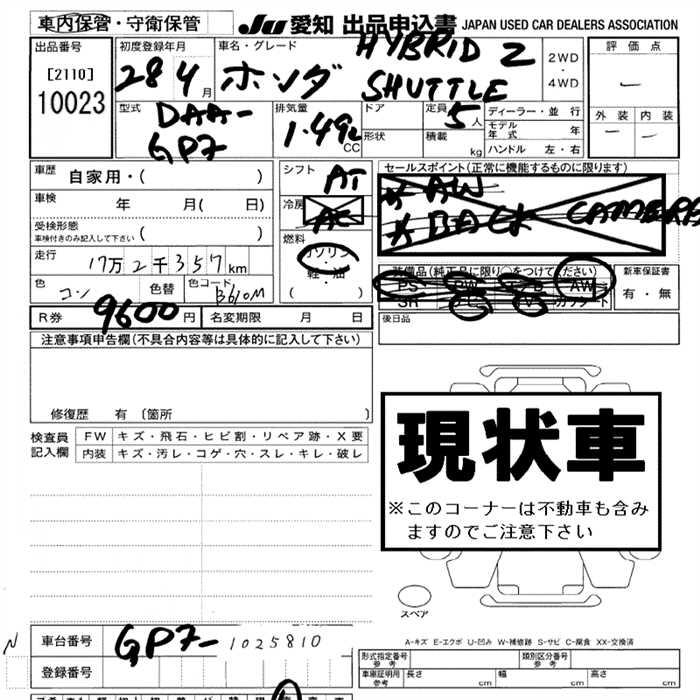 車内保管・守衛保管 JU 愛知 出品申込書 JAPAN USED CAR DEALERS ASSOCIATION
出品番号 [2110] 10023
初度登録年月 28 4月
車名・グレード ホンダ HYBRID Z SHUTTLE
2WD・4WD
評価点 ー
外装 ー 内装 ー
型式 DAA-GP7
排気量 1.49L CC
ドア 形状
定員 5人
積載 kg
ディーラー・並行
モデル年式 年
ハンドル 左・右
車歴 自家用・( )
車検 年 月( 日)
受検形態 車検付きのみ記入して下さい ( )
走行 17万2千357km
色 コン 色替 色コード B610M
シフト AT
冷房 AC
燃料 ガソリン・軽・油 ( )
セールスポイント(正常に機能するものに限ります)
* AW
* BACK CAMERA
装備品(純正品に限り○をつけてください)
PS PW AW
SR TV カワシート
新車保証書 有・無
後日品
R券 9600円 名変期限 月 日
注意事項申告欄(不具合内容等は具体的に記入して下さい)
修復歴 有 〔箇所 〕
検査員記入欄
FW キズ・飛石・ヒビ割・リペア跡・X要
内装 キズ・汚レ・コゲ・穴・スレ・キレ・破レ
現状車
※このコーナーは不動車も含み
ますのでご注意下さい
スペア
A-キズ E-エクボ U-凹み W-補修跡 S-サビ C-腐食 XX-交換済
N
車台番号 GP7-1025810
登録番号
形式指定番号 参考 類別区分番号 参考
車庫証明用 参考 長さ cm 幅 cm 高さ cm